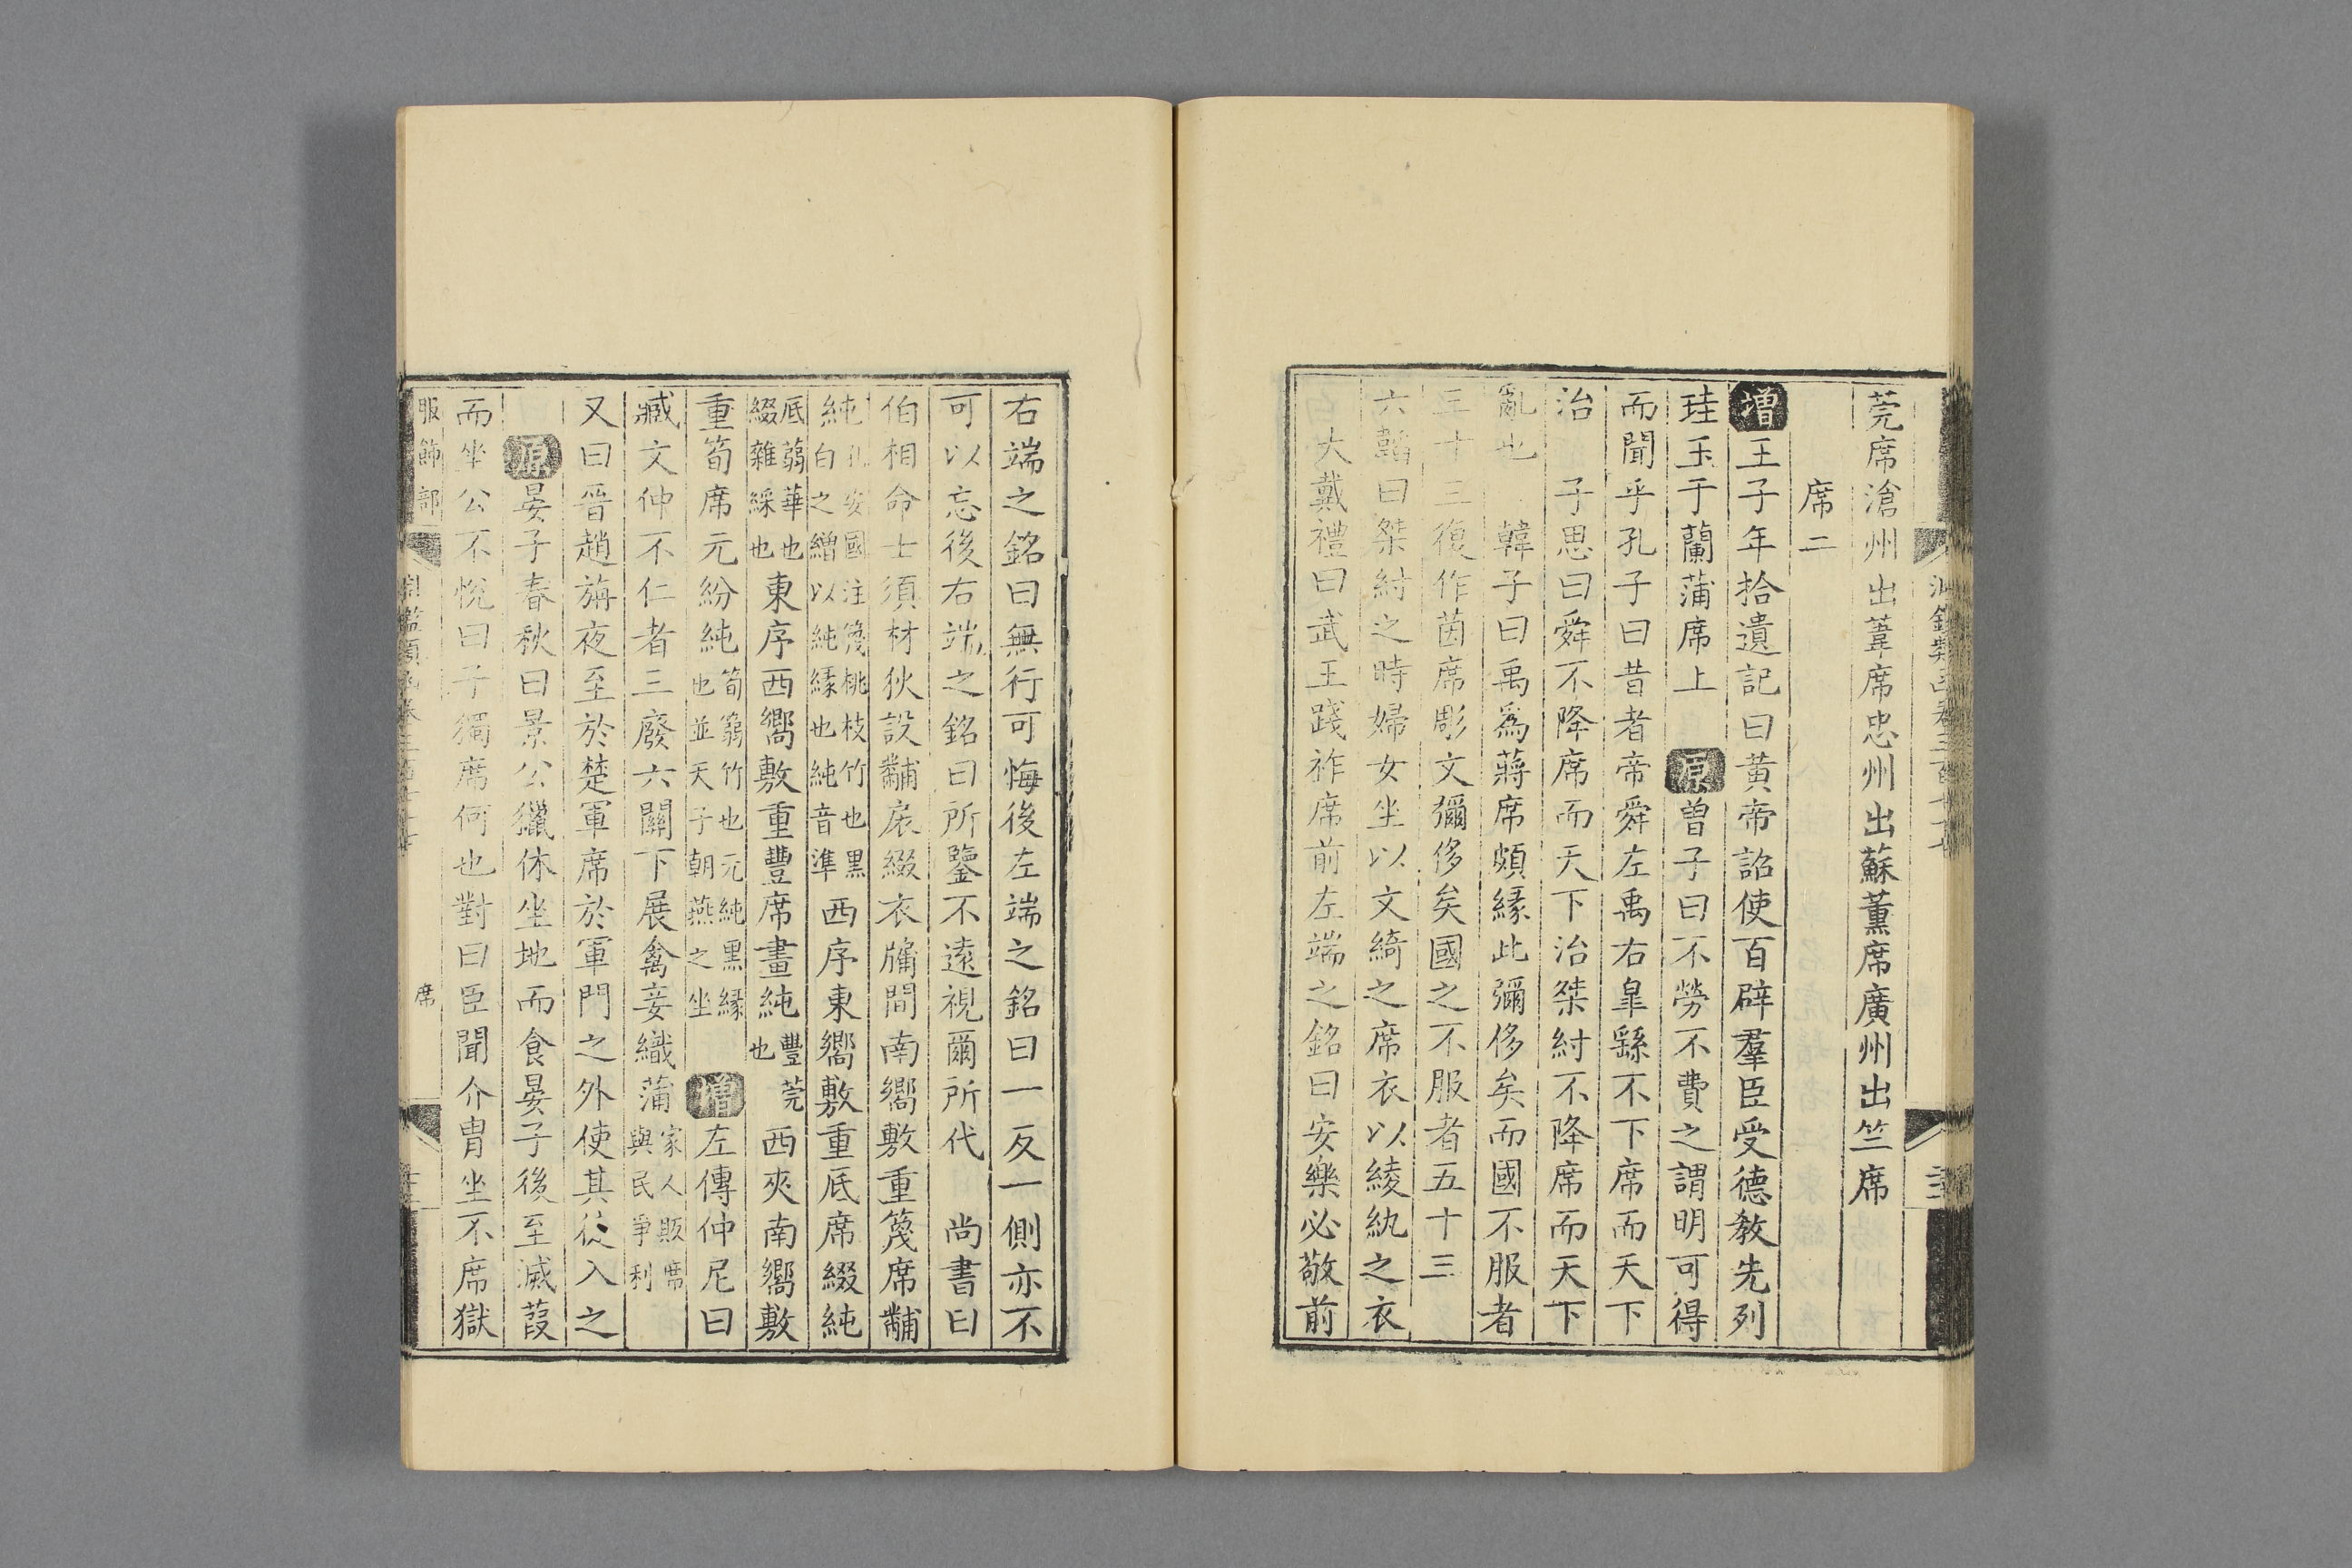 莞席滄州出葦席忠州出蘇薰席廣州出竺席
席二
增王子年拾遺記曰黃帝詔使百辟羣臣受德敎先列
珪玉于蘭蒲席上 原曾子曰不勞不費之謂明可得
而聞乎孔子曰昔者帝舜左禹右臯繇不下席而天下
治 子思曰舜不降席而天下治桀紂不降席而天下
亂也 韓子曰禹爲蔣席頗緣此彌侈矣而國不服者
三十三復作茵席彫文彌侈矣國之不服者五十三
六韜曰桀紂之時婦女坐以文綺之席衣以綾紈之衣
大戴禮曰武王踐祚席前左端之銘曰安樂必敬前
右端之銘曰無行可悔後左端之銘曰一反一側亦不
可以忘後右端之銘曰所鑒不遠視爾所代 尚書曰
伯相命士須材狄設黼扆綴衣牖間南嚮敷重篾席黼
純孔安國注篾桃枝竹也黑白之繒以純緣也純音準西序東嚮敷重底席綴純
底蒻華也綴雜綵也東序西嚮敷重豐席畫純豐莞也西夾南嚮敷
重筍席元紛純筍蒻竹也元純黑緣也並天子朝燕之坐 增左傳仲尼曰
臧文仲不仁者三廢六關下展禽妾織蒲家人販席與民爭利
又曰晉趙旃夜至於楚軍席於軍門之外使其徒入之
原晏子春秋曰景公獵休坐地而食晏子後至滅葭
而坐公不悅曰子獨席何也對曰臣聞介胄坐不席獄
服飾部 席